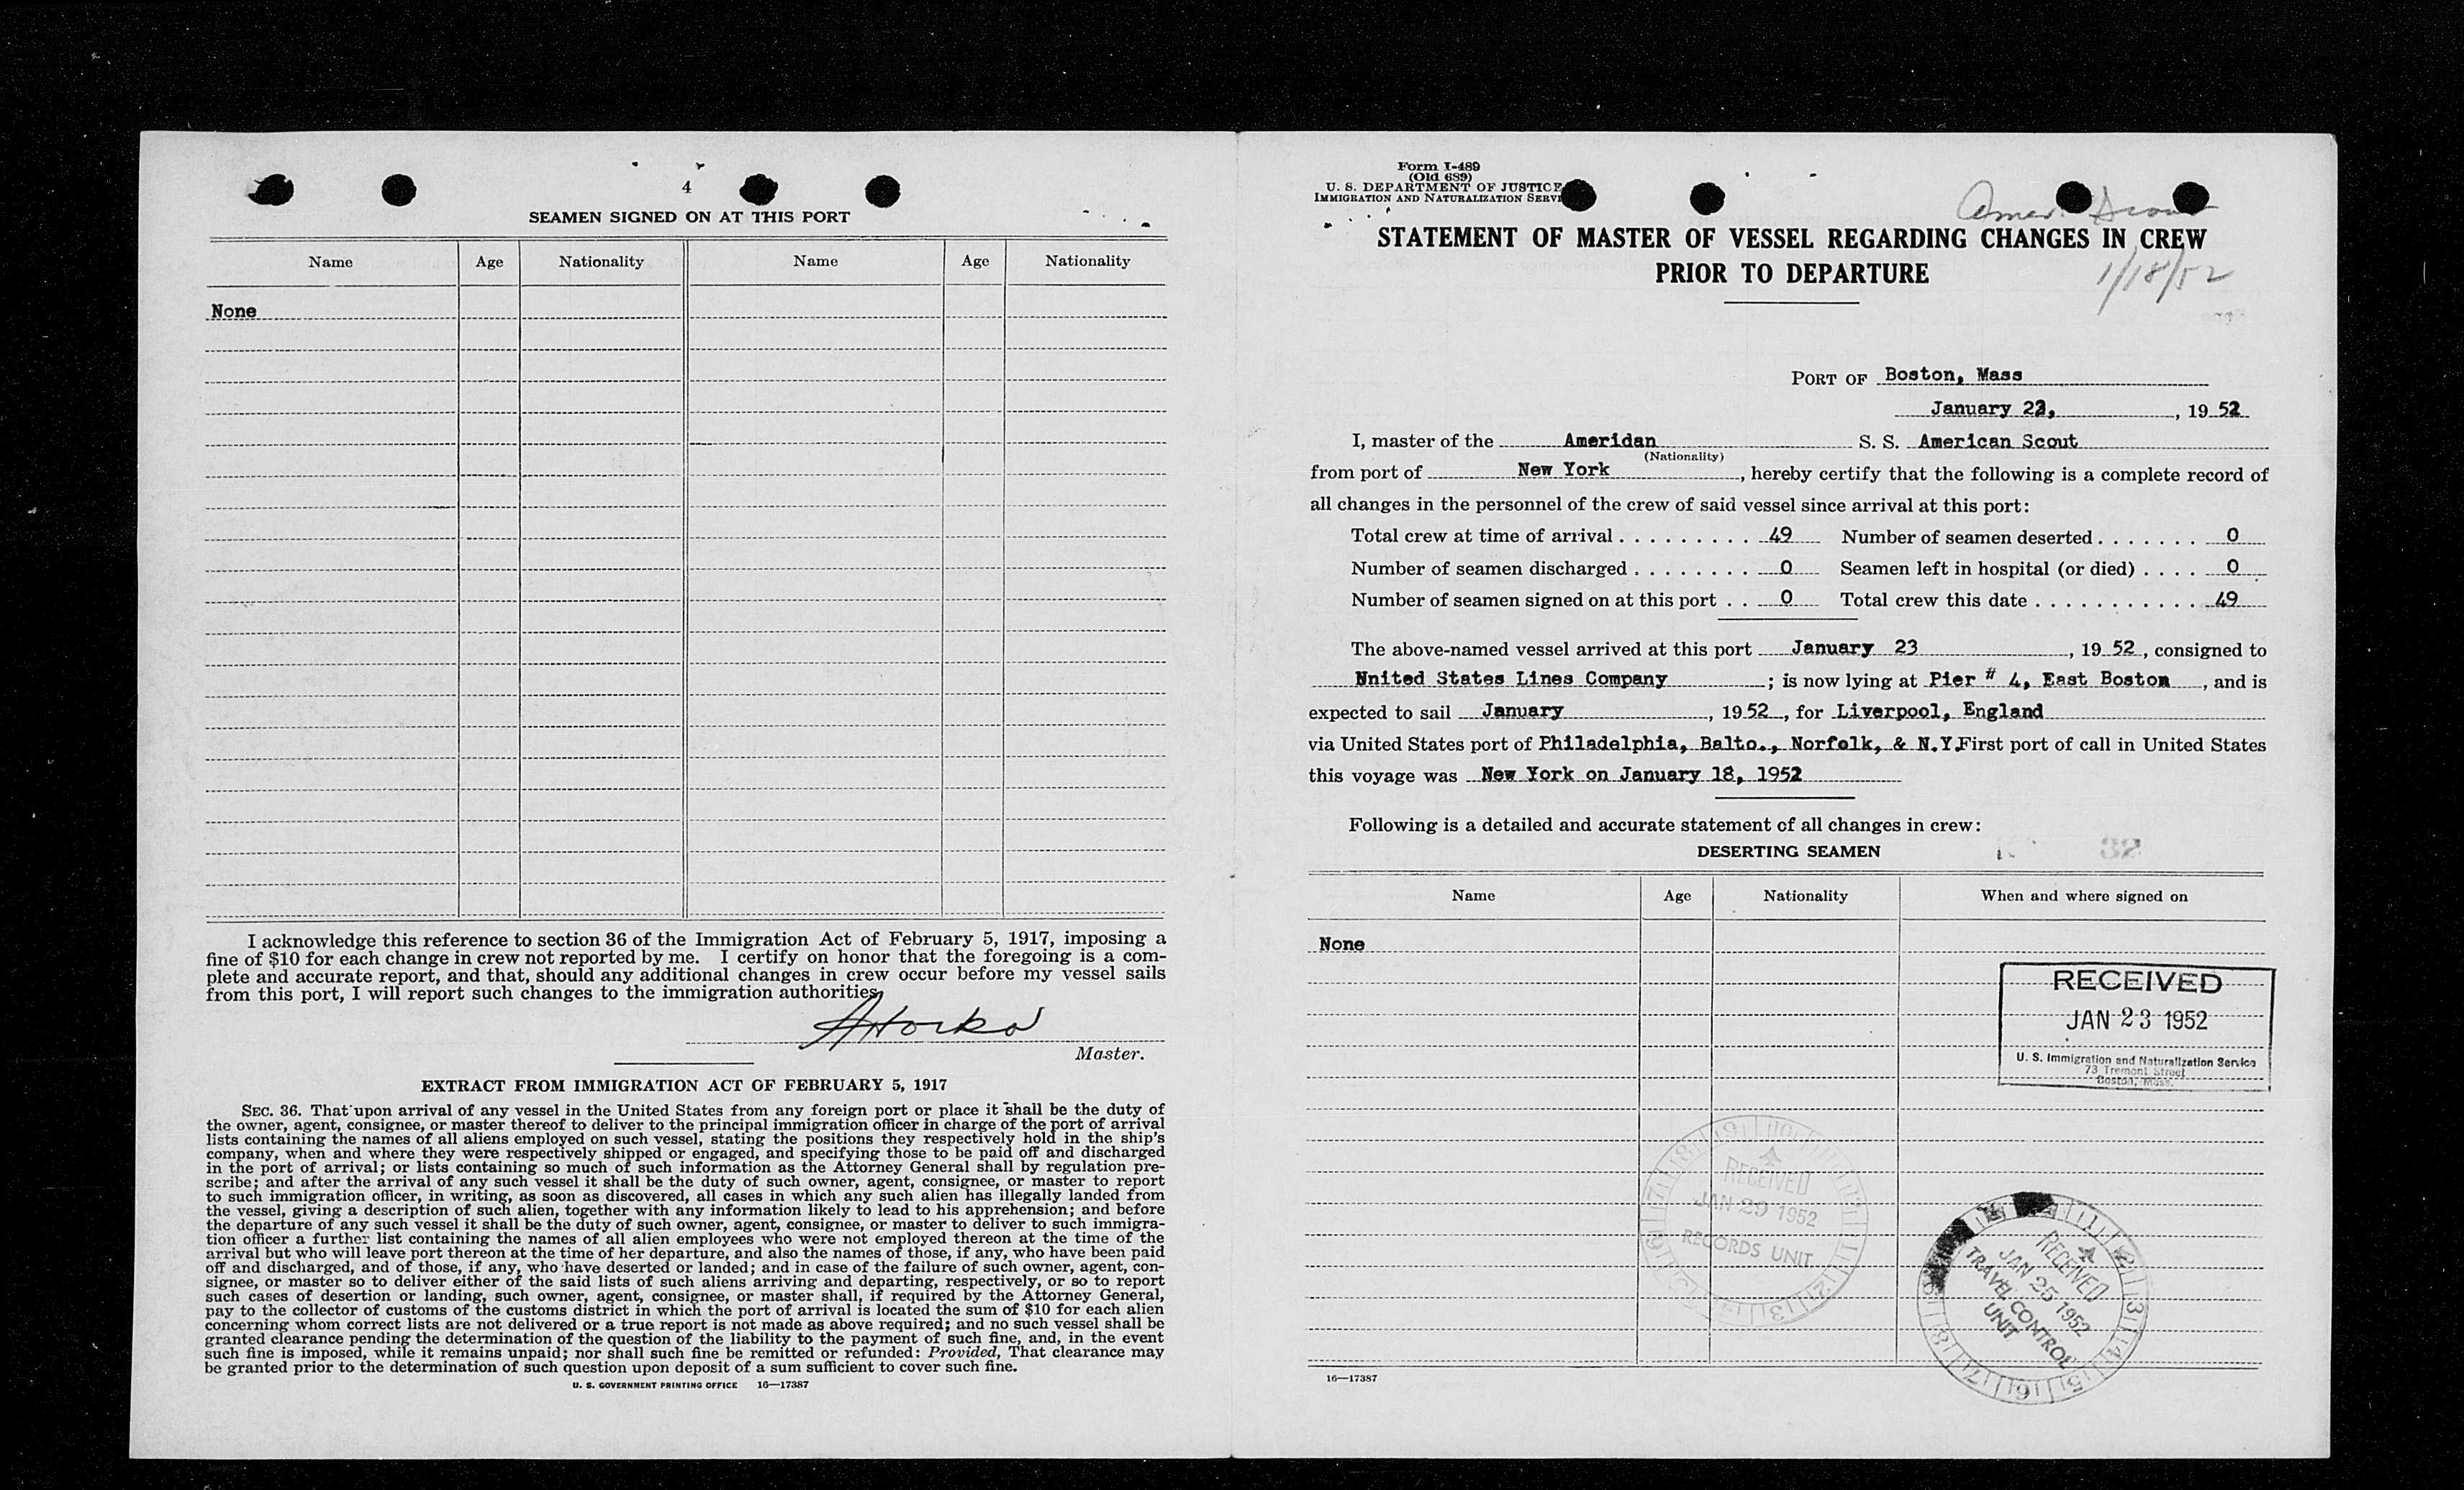 4
SEAMEN SIGNED ON AT THIS PORT
Name Age Nationality Name Age Nationality
None
I acknowledge this reference to section 36 of the Immigration Act of February 5, 1917, imposing a
fine of $10 for each change in crew not reported by me. I certify on honor that the foregoing is a com-
plete and accurate report, and that, should any additional changes in crew occur before my vessel sails
from this port, I will report such changes to the immigration authorities.
Master.
EXTRACT FROM IMMIGRATION ACT OF FEBRUARY 5, 1917
SEC. 36. That upon arrival of any vessel in the United States from any foreign port or place it shall be the duty of
the owner, agent, consignee, or master thereof to deliver to the principal immigration officer in charge of the port of arrival
lists containing the names of all aliens employed on such vessel, stating the positions they respectively hold in the ship's
company, when and where they were respectively shipped or engaged, and specifying those to be paid off and discharged
in the port of arrival; or lists containing so much of such information as the Attorney General shall by regulation pre-
scribe; and after the arrival of any such vessel it shall be the duty of such owner, agent, consignee, or master to report
to such immigration officer, in writing, as soon as discovered, all cases in which any such alien has illegally landed from
the vessel, giving a description of such alien, together with any information likely to lead to his apprehension; and before
the departure of any such vessel it shall be the duty of such owner, agent, consignee, or master to deliver to such immigra-
tion officer a further list containing the names of all alien employees who were not employed thereon at the time of the
arrival but who will leave port thereon at the time of her departure, and also the names of those, if any, who have been paid
off and discharged, and of those, if any, who have deserted or landed; and in case of the failure of such owner, agent, con-
signee, or master so to deliver either of the said lists of such aliens arriving and departing, respectively, or so to report
such cases of desertion or landing, such owner, agent, consignee, or master shall, if required by the Attorney General,
pay to the collector of customs of the customs district in which the port of arrival is located the sum of $10 for each alien
concerning whom correct lists are not delivered or a true report is not made as above required; and no such vessel shall be
granted clearance pending the determination of the question of the liability to the payment of such fine, and, in the event
such fine is imposed, while it remains unpaid; nor shall such fine be remitted or refunded: Provided, That clearance may
be granted prior to the determination of such question upon deposit of a sum sufficient to cover such fine.
U. S. GOVERNMENT PRINTING OFFICE 16—17387
Form I-489
(Old 689)
U. S. DEPARTMENT OF JUSTICE
IMMIGRATION AND NATURALIZATION SERVI
Amer. Scout
STATEMENT OF MASTER OF VESSEL REGARDING CHANGES IN CREW
PRIOR TO DEPARTURE
1/18/52
PORT OF Boston, Mass
January 23, , 19 52
I, master of the Ameridan S. S. American Scout
(Nationality)
from port of New York , hereby certify that the following is a complete record of
all changes in the personnel of the crew of said vessel since arrival at this port:
Total crew at time of arrival . . . . . . . . . 49 Number of seamen deserted . . . . . . . 0
Number of seamen discharged . . . . . . . . 0 Seamen left in hospital (or died) . . . . 0
Number of seamen signed on at this port . . 0 Total crew this date . . . . . . . . . . . 49
The above-named vessel arrived at this port January 23 , 19 52 , consigned to
Nnited States Lines Company ; is now lying at Pier # 4, East Boston , and is
expected to sail January , 19 52 , for Liverpool, England
via United States port of Philadelphia, Balto., Norfolk, & N.Y. First port of call in United States
this voyage was New York on January 18, 1952
Following is a detailed and accurate statement of all changes in crew:
32
DESERTING SEAMEN
Name Age Nationality When and where signed on
None
RECEIVED
JAN 23 1952
U. S. Immigration and Naturalization Service
73 Tremont Street
Boston, Mass.
RECEIVED
JAN 29 1952
RECORDS UNIT
RECEIVED
JAN 25 1952
TRAVEL CONTROL
UNIT
16—17387